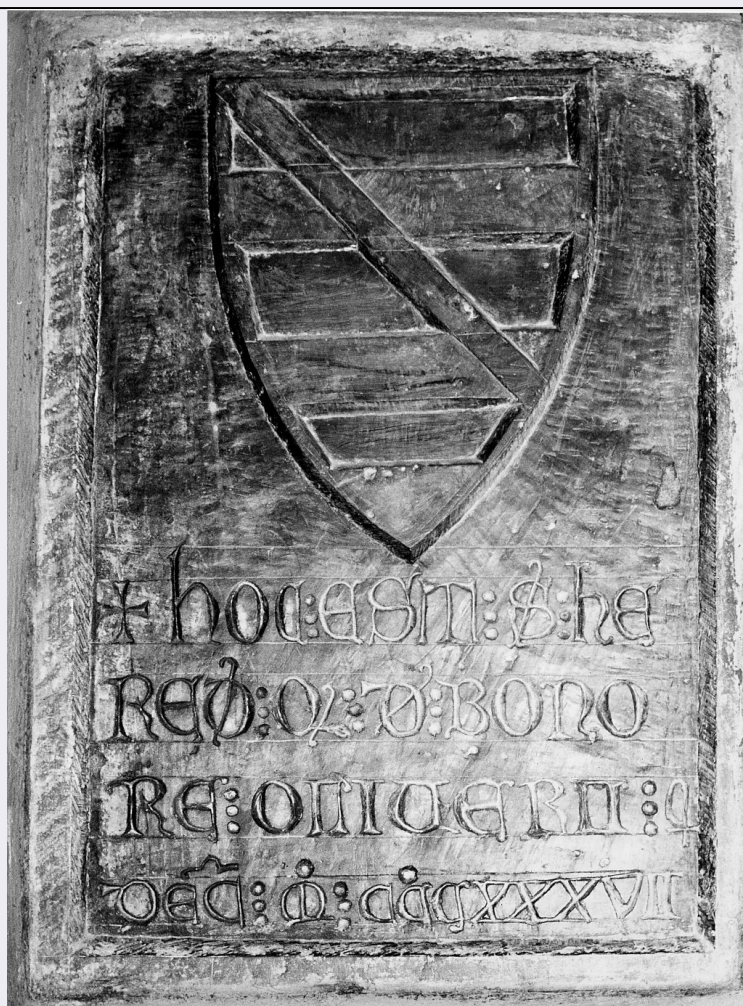 + hOC:EST:S:hE
RED:Q:D:BONO
RE:ONIVERII:Q
DEC:M:CCCXXXVII